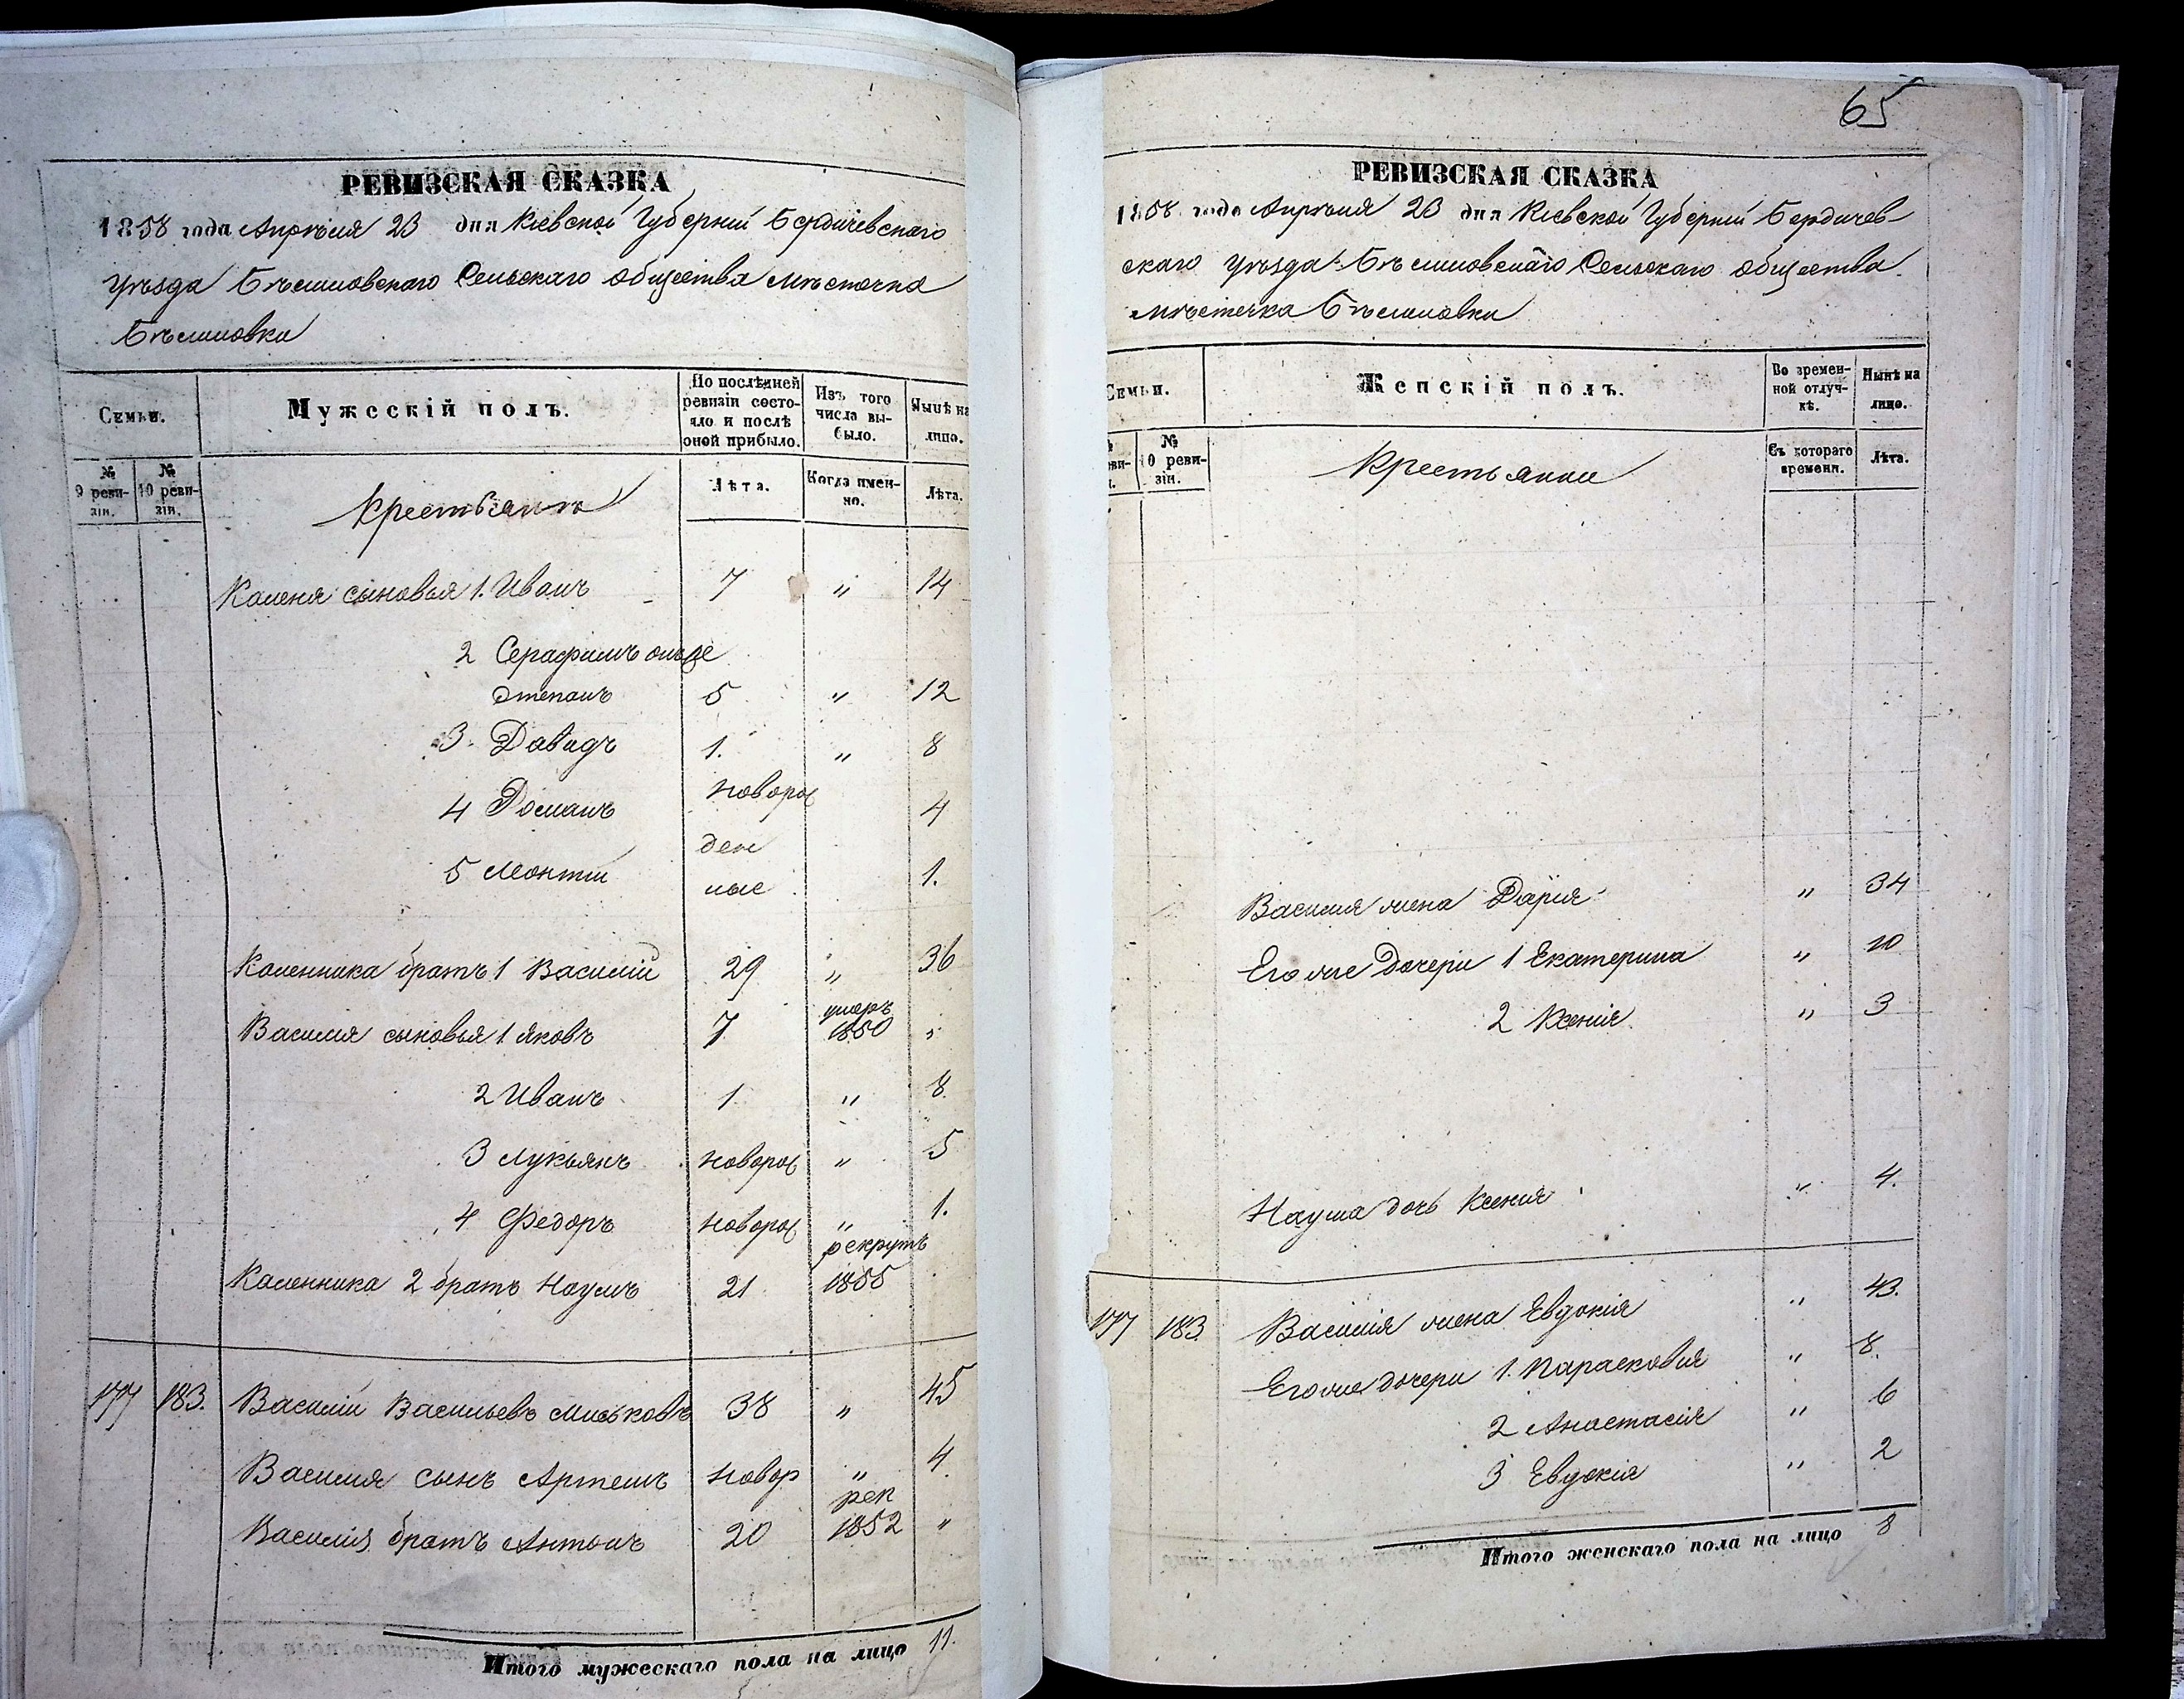 РЕВИЗСКАЯ СКАЗКА
1858 года Апрѣля 23 дня Кіевской Губерніи Бердичевскаго
уѣзда Бѣлиловскаго Сельскаго общества мѣстечка
Бѣлиловки
Семьи.
Мужескій полъ.
По послѣдней ревизіи состояло и послѣ оной прибыло.
Изъ того числа выбыло.
Нынѣ на лицо.
№ 9 ревизіи.
№ 10 ревизіи.
Крестьяне
Лѣта.
Когда именно.
Лѣта.
Каленя сыновья 1. Иванъ 7 " 14
2 Серафимъ онъ же
Степанъ 5 " 12
3. Давидъ 1. " 8
4 Романъ новорож 4
ден
5 Леонтій ные 1.
Каленника братъ 1 Василій 29 " 36
Василія сыновья 1. Яковъ 7 умеръ 1850 "
2 Иванъ 1 " 8.
3 Лукьянъ новорож " 5
4 Федоръ новорож " 1.
Каленника 2 братъ Наумъ 21 рекрутъ 1855
177 183. Василій Васильевъ Миськовъ 38 " 45
Василія сынъ Артемъ новор " 4
Василія братъ Антонъ 20 рек 1852 "
Итого мужескаго пола на лицо 11.
65
РЕВИЗСКАЯ СКАЗКА
1858 года Апрѣля 23 дня Кіевской Губерніи Бердичев-
скаго уѣзда Бѣлиловскаго Сельскаго общества
мѣстечка Бѣлиловки
Семьи.
Женскій полъ.
Во временной отлучкѣ.
Нынѣ на лицо.
№ 10 ревизіи.
Крестьянки
Съ котораго времени.
Лѣта.
Василія жена Дарія " 34
Его же дочери 1 Екатерина " 10
2 Ксенія " 3
Наума дочь Ксенія " 4.
177 183. Василія жена Евдокія " 43.
Его же дочери 1. Парасковія " 8.
2 Анастасія " 6
3 Евдокія " 2
Итого женскаго пола на лицо 8